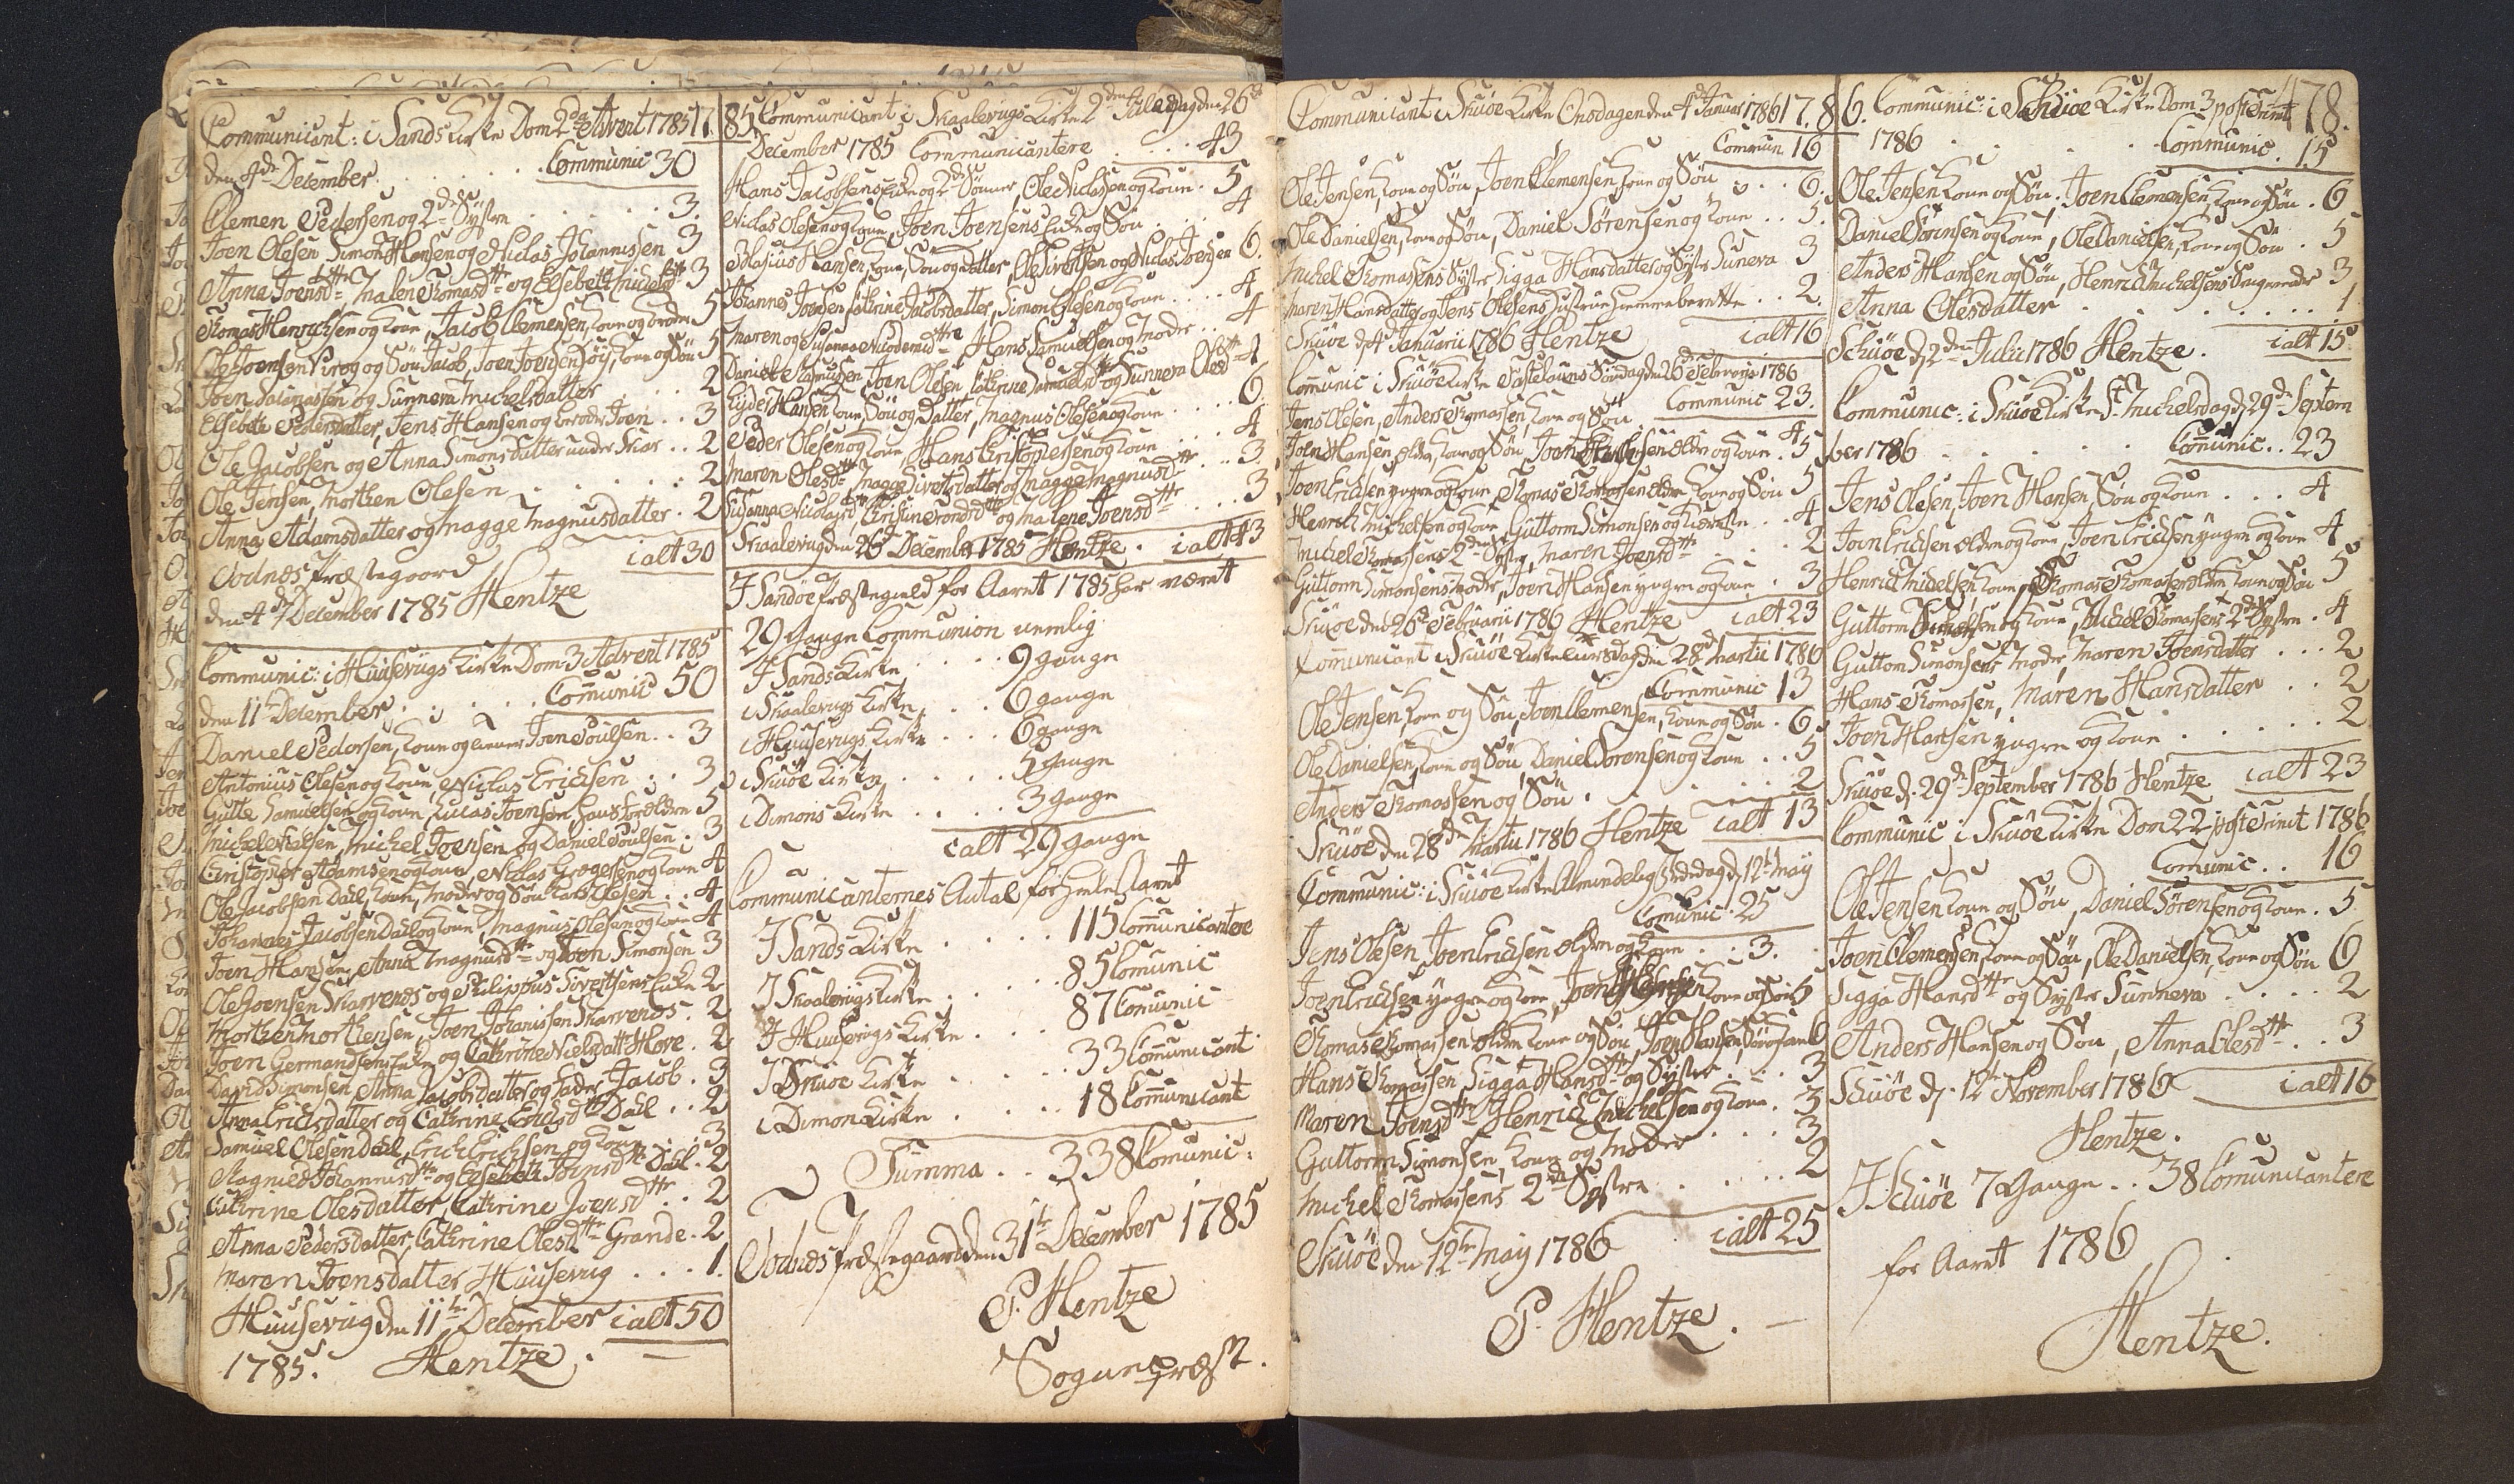 Communicant: i Sands Kirke Dom 2da Advent 1785
den 4de December . . . . . Communic 30
Clemen Pedersen og 2de Systre . . . . . 3.
Joen Olesen Simon Hansen og Niclas Johannissen 3
Anna Joensdttr Malene Thomasdttr og Elsebeth Michelsdttr 3
Thomas Henrichsen og Kone, Jacob Clemensen, Kone og broder 5
Ole Joensen og Søn Jacob, Joen Joensen, Kone og Søn 5
Joen og Sunneva Michelsdatter . . 2
Elsebeth Pedersdatter, Jens Hansen og broder Joen . . 3
Ole Jacobsen og Anna Simonsdatter under . . 2
Ole Jensen, Morthen Olesen . . . . . . 2
Anna Adamsdatter og Magge Magnusdatter . 2
Todnæs Præstegaard ialt 30
den 4de December 1785 Hentze
Communic: i Huusevigs Kirke Dom 3 Advent 1785
den 11te December . . . . . Comunic 50
Daniel Pedersen, Kone og Joen Poulsen . . 3
Antonius Olesen og Kone, Niclas Erichsen . . 3
Gutte Samuelsen og Kone, Lucas Joensen, 5
Michel Nielsen, Michel Joensen og Daniel Poulsen . 3
Christopher Adamsen og Kone, Niclas Gregersen og Kone 4
Ole Jacobsen Dahl, Kone, Moder og Søn . . 4
Johannes Jacobsen Dahl og Kone, Magnus Olesen og Kone 4
Joen Hansen, Anna Magnusdttr og Joen Simonsen 3
Ole Joensen Skarvenes og Philippus Sivertsens Enke 2
Morthen Morthensen, Joen Johanissen Skarvenes . 2
Joen Germandsens Enke og Cathrine Nielsdatt . 2
David Simonsen Anna Jacobsdatter og fader Jacob . 3
Anna Erichsdatter og Cathrine Erichsdttr Dahl . . 2
Samuel Olesen Dahl, Erich Erichsen og Kone . . 3
Ragnild Johannisdttr og Elsebeth Joensdttr Dahl . 2
Cathrine Olesdatter, Cathrine Joensdttr . . 2
Anna Pedersdatter, Cathrine Olesdttr Grande . 2
Maren Joensdatter Huusevig . . . 1.
Huusevig den 11te December ialt 50
1785. Hentze . —
1785
Communicant i Skaalevigs Kirke 2den Juledag den 26de
December 1785 Communicantere . . . 43
Hans Jacobsens Enke og 2de Sønner, Ole Niclassen og Kone . 5
Niclas Olesen og Kone, Joen Joensens Enke og Søn . . . 4
Blasius Hansen, Kone, Søn og Datter, Ole Sivertsen og Niclas Joensen 6.
Johannes Joensen Cathrine Jacobsdatter, Simon Olesen og Kone . . . . 4
Maren og Susanna Nicodemidttre, Hans Samuelsen og Moder . . 4
Daniel Rasmussen, Joen Olesen, Cathrine Samuelsdttr og Sunneva Olesdttr 4
Eyder Hansen Kone, Søn og Datter, Magnus Olesen og Kone . . . . 6.
Peder Olesen og Kone Hans Christophersen og Kone . . . . 4
Maren Olesdttr Magge Sivertsdatter og Magge Magnusdttr . . . 3.
Susanna Nicolajsdttr Christine og Malene Joensdttr . . . 3
Skaalevig den 26de December 1785 Hentze . ialt 43
I Sandöe Præstegield for Aaret 1785 har været
29 Gange Communion nemlig
I Sands Kirke . . . . . 9 gange
i Skaalevigs Kirke . . . 6 gange
i Huusevigs Kirke . . . 6 gange
i Skuöe Kirke . . . . . 5 gange
i Dimons Kirke . . . . 3 gange
ialt 29 gange
Communicanternes Antal for heele Aaret
I Sands Kirke . . . . . 115 Communicantere
I Skaalevigs Kirke . . . . . 85 Comunic
I Huusevigs Kirke . . . 87 Comunic
I Skuöe Kirke . . . . . 33 Communicant
i Dimon Kirke . . . . . 18 Communicant
Summa . . 338 Comunic:
Todnæs Præstegaard den 31te December 1785
P. Hentze
Sognepræst.
Communicant i Skuöe Kirke Onsdagen den 4de Januar 1786
Commun 16
Ole Jensen, Kone og Søn, Joen Clemensen, Kone og Søn . . . 6.
Ole Danielsen, Kone og Søn, Daniel Sörensen og Kone . . 5.
Michel Thomassens Syster Sigga Hansdatter og Syster Suneva 3
Maren Hansdatter og Jens Olesens hustrue . . 2.
Skuöe d. 4de Januarii 1786 Hentze ialt 16
Communic i Skuöe Kirke Fastelauns Søndag den 26de Februarij 1786
Communic 23.
Jens Olesen, Anders Thomassen, Kone og Søn . . . 4
Joen Hansen ældre, Kone og Søn, Joen Erichsen ældre og Kone . 5
Joen Erichsen yngre og Kone, Thomas Thomassen ældre Kone og Søn 5
Henrich Michelsen og Kone, Guttorm Simonsen og . . 4
Michel Thomassens 2de Systre, Maren Joensdttr . . . 2
Guttorm Simonsens Moder, Joen Hansen yngre og Kone . 3
Skuöe den 26de Februarii 1786 Hentze ialt 23
Communicant i Skuöe Kirke den 28de Martii 1786
Communic 13
Ole Jensen, Kone og Søn, Joen Clemensen, Kone og Søn . 6
Ole Danielsen, Kone og Søn Daniel Sörensen og Kone . . 5
Anders Thomassen og Søn . . . . . . 2
Skuöe den 28de Martii 1786 Hentze ialt 13
Communic: i Skuöe Kirke Almindelig Bededag d. 12te May
Comunic . 25
Jens Olesen, Joen Erichsen ældre og Kone . . 3.
Joen Erichsen yngre og Kone, Joen Hansen Kone og Søn 5
Thomas Thomassen ældre Kone og Søn, Joen Hansen 6
Hans Thomassen Sigga Hansdttr og Syster . . . 3
Maren Joensdttr Henrich Michelsen og Kone . 3
Guttorm Simonsen, Kone og Moder . . . 3
Michel Thomassens 2de Systre . . . . . 2
Skuöe den 12te May 1786 ialt 25
P. Hentze . —
1786.
178.
Communic: i Skuöe Kirke Dom 3 post Trinit
1786 . . . . . Communic . 15
Ole Jensen, Kone og Søn . Joen Clemensen, Kone og Søn . 6
Daniel Sörensen og Kone, Ole Danielsen, Kone og Søn . 5
Anders Hansen og Søn, Henrich Michelsens 3
Anna Olesdatter . . . . . . . 1
Skuöe d. 2den Julii 1786 Hentze . ialt 15
Communic: i Skuöe Kirke St. Michelsdag d. 29de Septem
ber 1786 . . . . . Comunic . . 23
Jens Olesen, Joen Hansen, Søn og Kone . . . 4
Joen Erichsen ældre og Kone, Joen Erichsen yngre og Kone 4
Henrich Michelsen, Kone, Thomas Thomassen ældre Kone og Søn 5
Guttorm Simonsen og Kone, Michel Thomassens 2de Systre . 4
Guttorm Simonsens Moder, Maren Joensdatter . . . 2
Hans Thomassen, Maren Hansdatter . . 2
Joen Hansen yngre og Kone . . . . . 2
Skuöe d. 29de September 1786 Hentze ialt 23
Communic i Skuöe Kirke Dom 22 post Trinit 1786
Comunic . . 16
Ole Jensen Kone og Søn, Daniel Sörensen og Kone . 5
Joen Clemensen, Kone og Søn, Ole Danielsen, Kone og Søn 6
Sigga Hansdttr og Syster Sunneva . . . . 2
Anders Hansen og Søn, Anna Olesdttr . . 3
Skuöe d. 12te November 1786 ialt 16
Hentze.
I Skuöe 7 Gange . . 38 Communicantere
for Aaret 1786
Hentze.